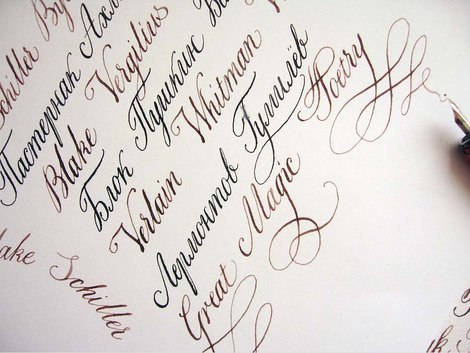 Schiller By
Пастернак Ахм
Blake Vergilius
Блок Пушкин Ба
Verlain Whitman
Лермонтов Гумилёв
Great Magic Poetry
lake Schiller